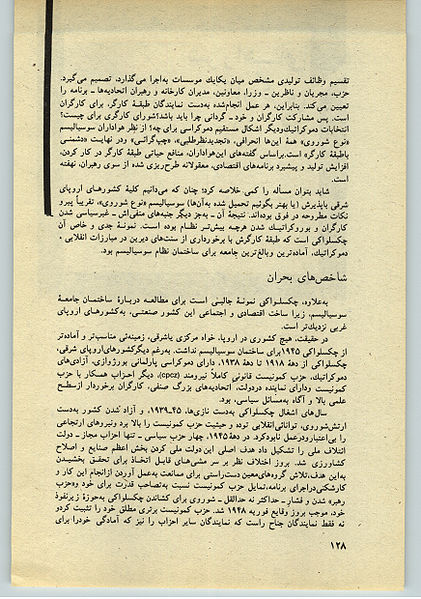 تقسیم وظائف تولیدی مشخص میان یکایك موسسات به‌اجرا می‌گذارد، تصمیم می‌گیرد.
حزب، مجریان و ناظرین ـ وزرا، معاونین، مدیران کارخانه و رهبران اتحادیه‌ها ـ برنامه را
تعیین می‌کند. بنابراین، هر عمل انجام‌شده به‌دست نمایندگان طبقهٔ کارگر، برای کارگران
است. پس مشارکت کارگران و خود ـ گردانی چرا باید باشد؟شورای کارگری برای چیست؟
انتخابات دموکراتیك‌ودیگر اشکال مستقیم دموکراسی برای چه؟ از نظر هواداران سوسیالیسم
«نوع شوروی» همهٔ این‌ها انحرافی، «تجدیدنظرطلبی»، «چپ‌گرائی» ودر نهایت «دشمنی
باطبقهٔ کارگر» است.براساس گفته‌های این‌هواداران، منافع حیاتی طبقهٔ کارگر در کار کردن،
افزایش تولید و پیشبرد برنامه‌های اقتصادی، معقولانه طرح‌ریزی شده از سوی رهبران، نهفته
است.
شاید بتوان مسأله را کمی خلاصه کرد؛ چنان که می‌دانیم کلیهٔ کشورهای اروپای
شرقی باپذیرش (یا بهتر بگوئیم تحمیل شده به‌آن‌ها) سوسیالیسم «نوع شوروی»، تقریباً پیرو
نکات مطروحه در فوق بوده‌اند. نتیجهٔ آن ـ به‌جز دیگر جنبه‌های منفی‌اش ـ غیرسیاسی شدن
کارگران و بوروکراتیك شدن هرچه بیش‌تر نظام بوده است. نمونهٔ جدی و خاص آن
چکسلواکی است که طبقهٔ کارگرش با برخورداری از سنت‌های دیرین در مبارزات انقلابی ـ
دموکراتیك، آماده‌ترین وبالغ‌ترین جامعه برای ساختمان نظام سوسیالیسم بود.
شاخص‌های بحران
به‌علاوه، چکسلواکی نمونهٔ جالبی است برای مطالعه دربارهٔ ساختمان جامعهٔ
سوسیالیسم، زیرا ساخت اقتصادی و اجتماعی این کشور صنعتی، به‌کشورهای اروپای
غربی نزدیك‌تر است.
در حقیقت، هیچ کشوری در اروپا، خواه مرکزی یاشرقی، زمینه‌ئی مناسب‌تر و آماده‌تر
از چکسلواکی ۱۹۴۵برای ساختمان سوسیالیسم نداشت. به‌رغم دیگرکشورهای‌اروپای شرقی،
چکسلواکی از دههٔ ۱۹۱۸ تا دههٔ ۱۹۳۸، دارای دموکراسی پارلمانی بورژوازی، آزادی‌های
دموکراتیك، حزب کمونیست قانونی کاملاً نیرومند (cpcz)، دیگر احزاب همسکار با حزب
کمونیست دارای نماینده دردولت، اتحادیه‌های بزرگ صنفی، کارگران برخوردار ازسطح
علمی بالا و آگاه به‌مسائل سیاسی، بود.
سال‌های اشغال چکسلواکی به‌دست نازی‌ها، ۴۵ـ۱۹۳۹، و آزاد شدن کشور به‌دست
ارتش‌شوروی، توانائی‌انقلابی توده و حیثیت حزب کمونیست را بالا برد ونیروهای ارتجاعی
را بی‌اعتبارودرعمل نابودکرد. در دههٔ ۱۹۴۵، چهار حزب سیاسی ـ تنها احزاب مجاز ـ دولت
ائتلاف ملی را تشکیل داد هدف اصلی این دولت ملی کردن بخش اعظم صنایع و اصلاح
کشاورزی شد. بروز اختلاف نظر بر سر مشی‌های قابل اتخاذ برای تحقق بخشیدن
به‌این هدف،تلاش گروه‌های‌معین دست‌راستی برای ممانعت به‌عمل آوردن ازانجام این کار و
کارشکنی‌دراجرای برنامه،تمایل حزب کمونیست نسبت به‌تصاحب قدرت برای خود «حزب
رهبر» شدن و فشار ـ حداکثر نه حداقل ـ شوروی برای کشاندن چکسلواکی به‌حوزهٔ زیرنفوذ
خود، موجب بروز وقایع فوریه ۱۹۴۸ شد. حزب کمونیست برتری مطلق خود را تثبیت کرد
نه فقط نمایندگان جناح راست که نمایندگان سایر احزاب را نیز که آمادگی خودرا برای
۱۲۸